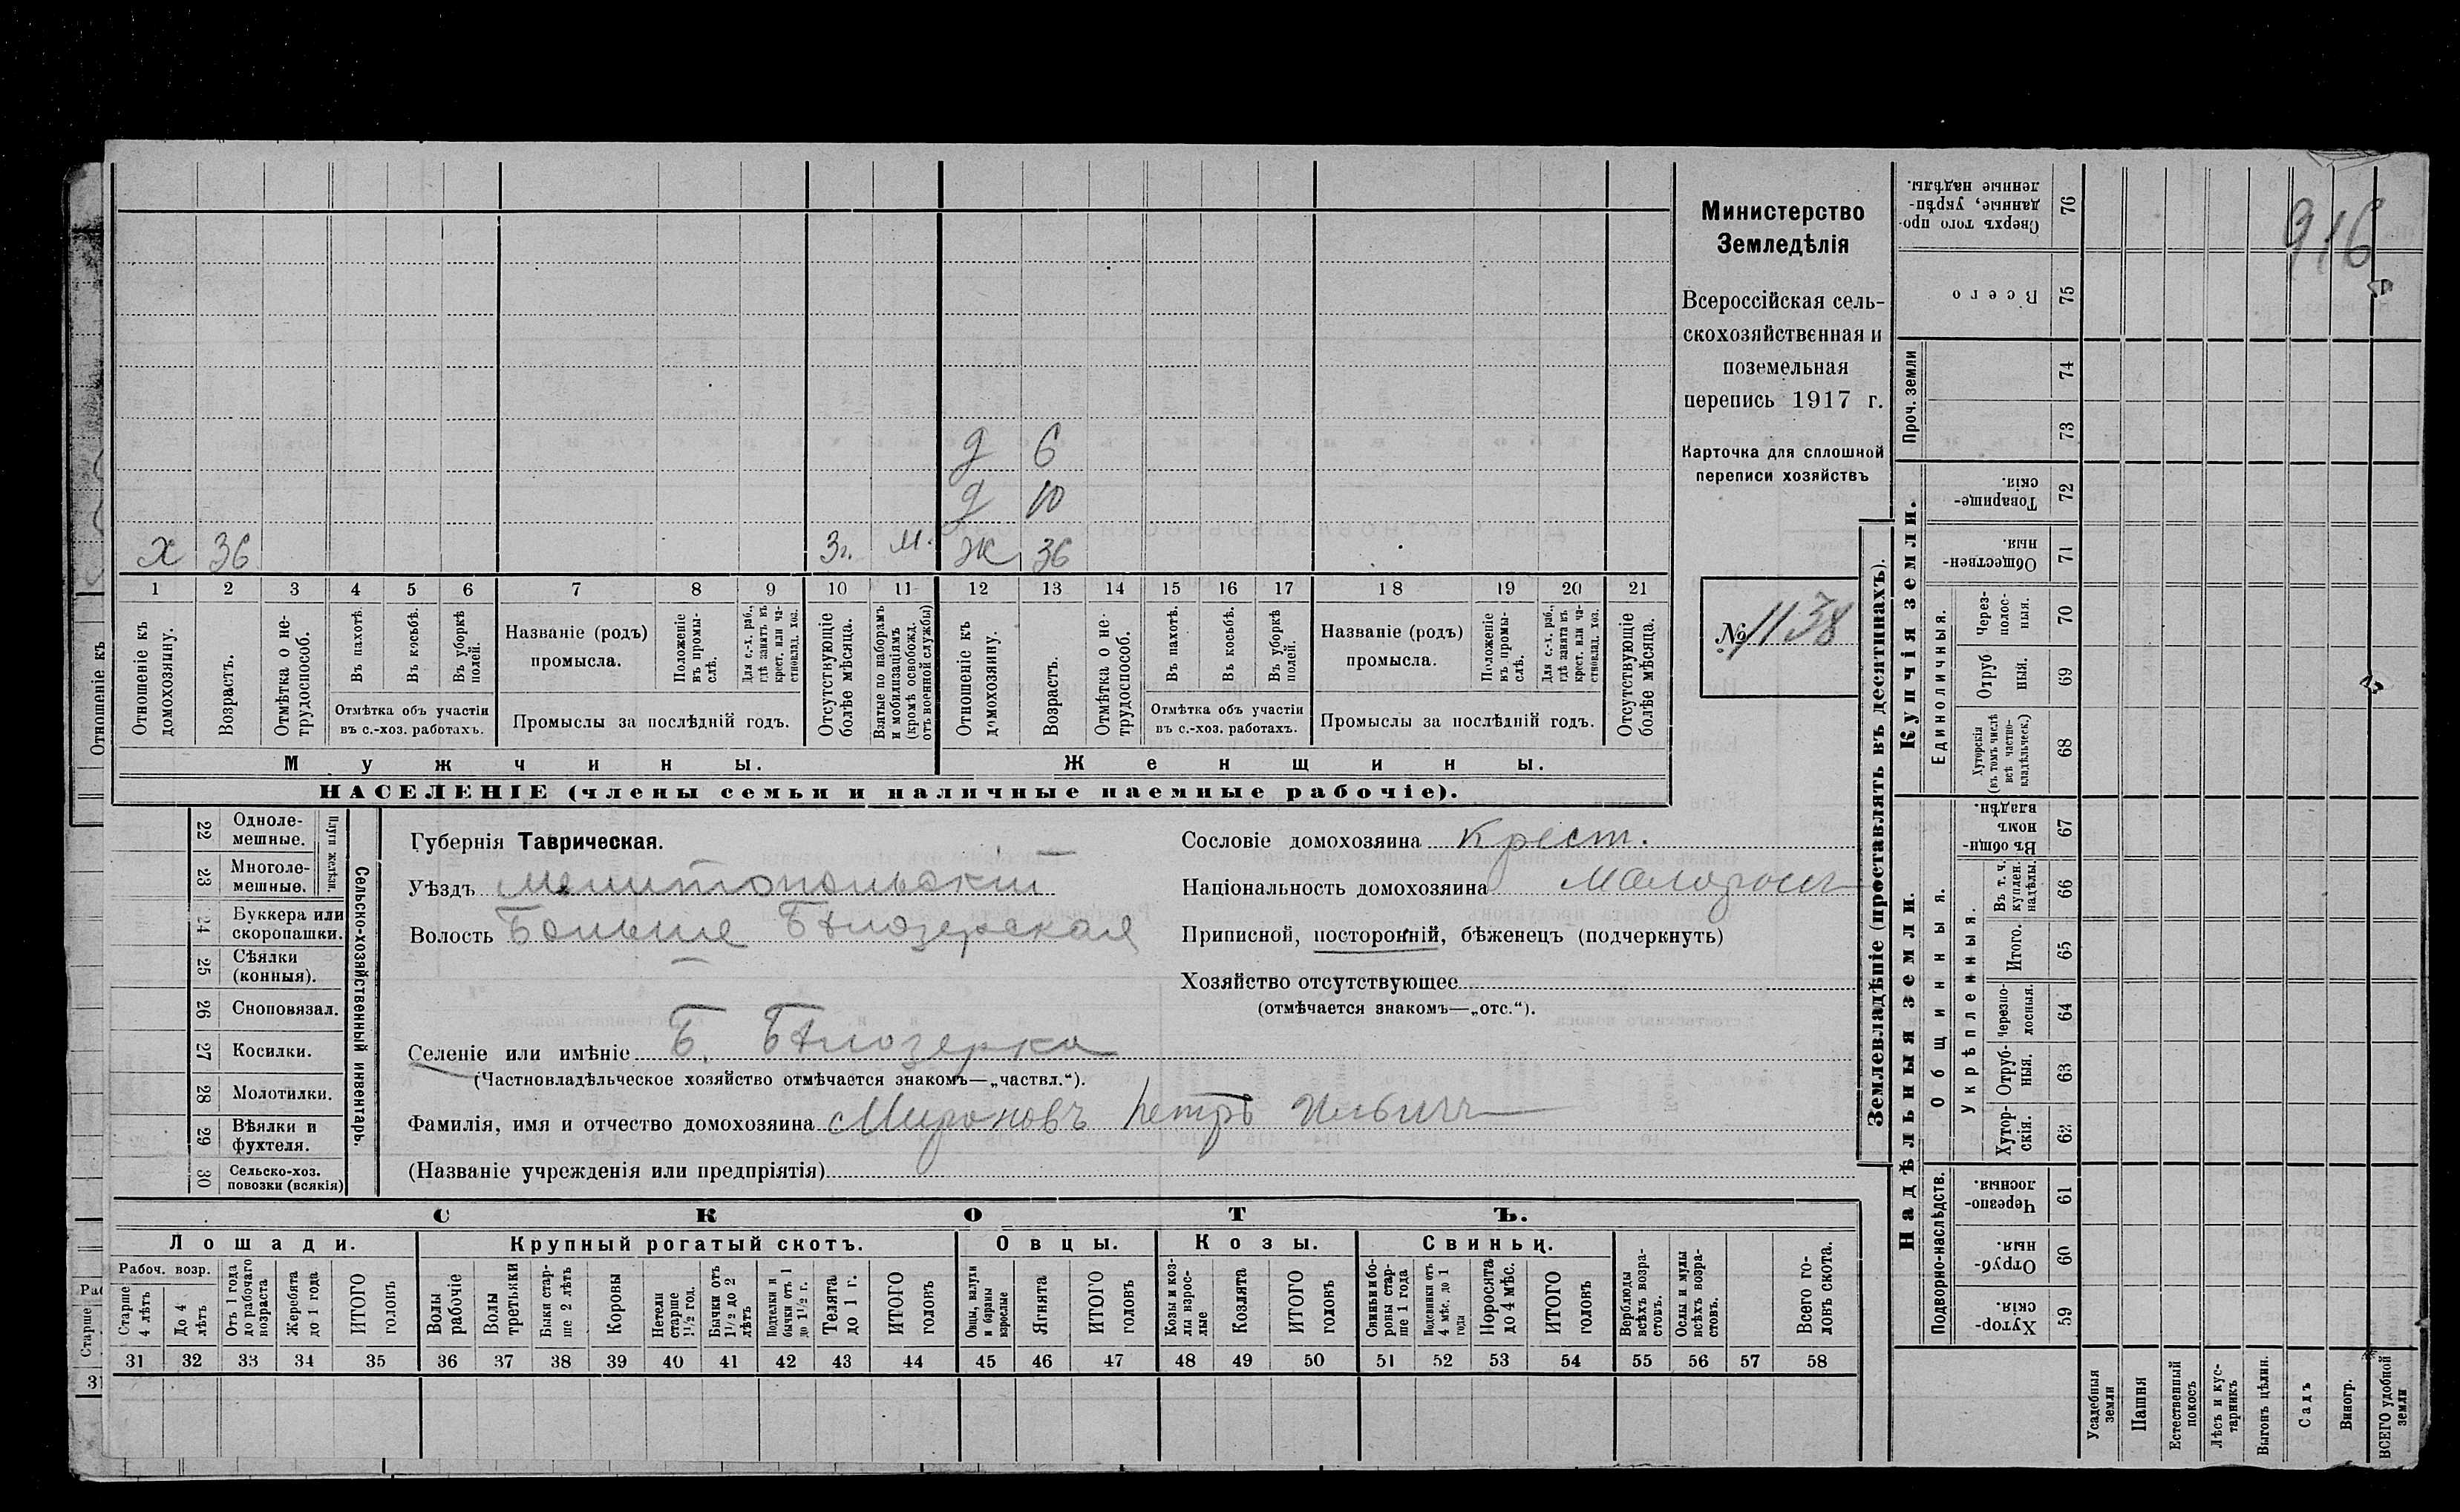 Министерство
Земледѣлія
Всероссійская сель-
скохозяйственная и
поземельная
перепись 1917 г.
Карточка для сплошной
переписи хозяйствъ
№ 1138
916
д 6
д 10
х 36 3г. м. ж 36
1 2 3 4 5 6 7 8 9 10 11 12 13 14 15 16 17 18 19 20 21
Отношеніе къ домохозяину.
Возрастъ.
Отмѣтка о не-трудоспособ.
Въ пахотѣ.
Въ косьбѣ.
Въ уборкѣ полей.
Отмѣтка объ участіи
въ с.-хоз. работахъ.
Названіе (родъ)
промысла.
Положеніе въ промы-слѣ.
Для с.-х. раб., гдѣ занятъ въ крест. или ча-стновлад. хоз.
Промыслы за послѣдній годъ.
Отсутствующіе болѣе мѣсяца.
Взятые по наборамъ и мобилизаціямъ (кромѣ освобожд. отъ военной службы)
Отношеніе къ домохозяину.
Возрастъ.
Отмѣтка о не-трудоспособ.
Въ пахотѣ.
Въ косьбѣ.
Въ уборкѣ полей.
Отмѣтка объ участіи
въ с.-хоз. работахъ.
Названіе (родъ)
промысла.
Положеніе въ промы-слѣ.
Для с.-х. раб., гдѣ занята въ крест. или ча-стновлад. хоз.
Промыслы за послѣдній годъ.
Отсутствующіе болѣе мѣсяца.
Мужчины. Женщины.
НАСЕЛЕНІЕ (члены семьи и наличные наемные рабочіе).
Отношеніе къ
22 Одноле-мешные.
23 Многоле-мешные.
Плуги желѣзн.
24 Буккера или скоропашки.
25 Сѣялки (конныя).
26 Сноповязал.
27 Косилки.
28 Молотилки.
29 Вѣялки и фухтеля.
30 Сельско-хоз. повозки (всякія)
Сельско-хозяйственный инвентарь.
Губернія Таврическая.
Уѣздъ Мелитопольскій
Волость Больше Бѣлозерская
Селеніе или имѣніе Б. Бѣлозерка
(Частновладѣльческое хозяйство отмѣчается знакомъ—„частвл.“).
Фамилія, имя и отчество домохозяина Мироновъ Петръ Ильичъ
(Названіе учрежденія или предпріятія)
Сословіе домохозяина Крест.
Національность домохозяина Малоросъ
Приписной, посторонній, бѣженецъ (подчеркнуть)
Хозяйство отсутствующее
(отмѣчается знакомъ—„отс.“).
СКОТЪ.
Лошади. Крупный рогатый скотъ. Овцы. Козы. Свиньи.
Рабоч. возр.
Старше 4 лѣтъ
До 4 лѣтъ
Отъ 1 года до рабочаго возраста
Жеребята до 1 года
ИТОГО головъ
Волы рабочіе
Волы третьяки
Быки стар-ше 2 лѣтъ
Коровы
Нетели старше 1½ год.
Бычки отъ 1½ до 2 лѣтъ
Подтелки и бычки отъ 1 до 1½ г.
Телята до 1 г.
ИТОГО головъ
Овцы, валухи и бараны взрослые
Ягнята
ИТОГО головъ
Козы и коз-лы взрос-лые
Козлята
ИТОГО головъ
Свиньи и бо-ровы стар-ше 1 года
Подсвинки отъ 4 мѣс. до 1 года
Поросята до 4 мѣс.
ИТОГО головъ
Верблюды всѣхъ возра-стовъ.
Ослы и мулы всѣхъ возра-стовъ.
Всего го-ловъ скота.
31 32 33 34 35 36 37 38 39 40 41 42 43 44 45 46 47 48 49 50 51 52 53 54 55 56 57 58
Землевладѣніе (проставлять въ десятинахъ).
Купчія земли.
Надѣльныя земли.
Сверхъ того про-данные, укрѣп-ленные надѣлы. 76
Всего 75
Проч. земли 74
73
Товарище-скія. 72
Обществен-ныя. 71
Единоличныя.
Через-полос-ныя. 70
Отруб-ныя. 69
Хуторскія (въ томъ числѣ всѣ частно-владѣльческ.) 68
Общинныя.
Въ общин-номъ владѣн. 67
Укрѣпленныя.
Въ т. ч. куплен. надѣлы. 66
Итого. 65
Черезпо-лосныя. 64
Отруб-ныя. 63
Хутор-скія. 62
Подворно-наслѣдств.
Черезпо-лосныя. 61
Отруб-ныя. 60
Хутор-скія. 59
Усадебныя земли
Пашня
Естественный покосъ
Лѣсъ и кус-тарникъ
Выгонъ цѣлин.
Садъ
Виногр.
ВСЕГО удобной земли